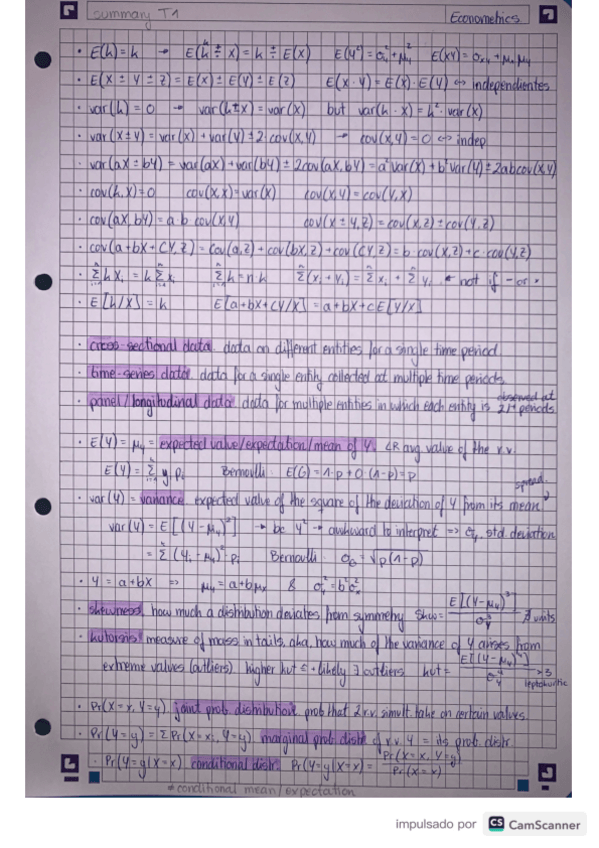 summary T1
Econometrics
· E(k)=k → E(k ± x) = k ± E(x) E(Y²)=σ²y+μ²y E(XY)=σxy+μx μy
· E(X ± Y ± Z) = E(X) ± E(Y) ± E(Z) E(X·Y) = E(X)·E(Y) ↔ independientes
· var(k) = 0 → var(k±x) = var(x) but var(k·x) = k²·var(x)
· var(X±Y) = var(X) + var(Y) ± 2·cov(X,Y) → cov(X,Y) = 0 ↔ indep
· var(aX ± bY) = var(aX) + var(bY) ± 2cov(aX,bY) = a²var(X) + b²var(Y) ± 2abcov(X,Y)
· cov(k,X)=0 cov(X,X)=var(X) cov(X,Y)=cov(Y,X)
· cov(aX,bY) = a·b cov(X,Y) cov(X ± Y,Z) = cov(X,Z) ± cov(Y,Z)
· cov(a+bX+CY,Z) = cov(a,Z) + cov(bX,Z) + cov(CY,Z) = b·cov(X,Z) + c·cov(Y,Z)
· Σkxi = kΣxi Σk = n·k Σ(xi + yi) = Σxi + Σyi ← not if - or ×
· E[k/X] = k E[a+bX+CY/X] = a+bX+cE[Y/X]
· cross-sectional data data on different entities for a single time period.
· time-series data data for a single entity collected at multiple time periods.
· panel/longitudinal data data for multiple entities in which each entity is observed at 2/+ periods
· E(Y) = μy = expected value/expectation/mean of Y. LR avg. value of the r.v.
E(Y) = Σ yi pi Bernoulli: E(G) = 1·p + 0·(1-p) = p
spread
· var(Y) = variance expected value of the square of the deviation of Y from its mean
var(Y) = E[(Y-μy)²] → bc Y² → awkward to interpret => σy, std deviation
= Σ(Yi-μy)²·pi Bernoulli: σG = √p(1-p)
· Y = a+bX => μy = a+bμx & σ²y = b²σ²x
· skewness how much a distribution deviates from symmetry Skew = E[(Y-μy)³]/σ³y ∄ units
· kurtosis measure of mass in tails, aka, how much of the variance of Y arises from
extreme values (outliers). higher kurt ≤ + likely ∃ outliers kurt = E[(Y-μy)⁴]/σ⁴y >3 leptokurtic
· Pr(X=x, Y=y). joint prob. distribution prob that 2 r.v. simult. take on certain values.
· Pr(Y=y) = ΣPr(X=xi, Y=y) marginal prob distr of r.v. Y = its prob. distr.
· Pr(Y=y|X=x) conditional distr. Pr(Y=y|X=x) = Pr(X=x, Y=y)/Pr(X=x)
≠ conditional mean/expectation
impulsado por CS CamScanner